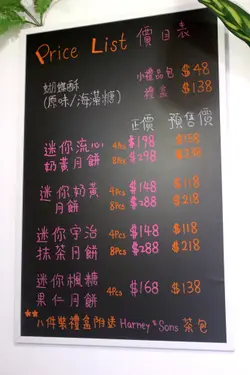 Price List 價目表
蝴蝶酥 小禮品包 $48
(原味/海藻糖) 禮盒 $138
正價 預售價
迷你流心 4Pcs $198 $158
奶黃月餅 8Pcs $298 $238
迷你奶黃 4Pcs $148 $118
月餅 8Pcs $288 $218
迷你宇治 4Pcs $148 $118
抹茶月餅 8Pcs $288 $218
迷你楓糖 4Pcs $168 $138
果仁月餅
**八件裝禮盒附送 Harney & Sons 茶包